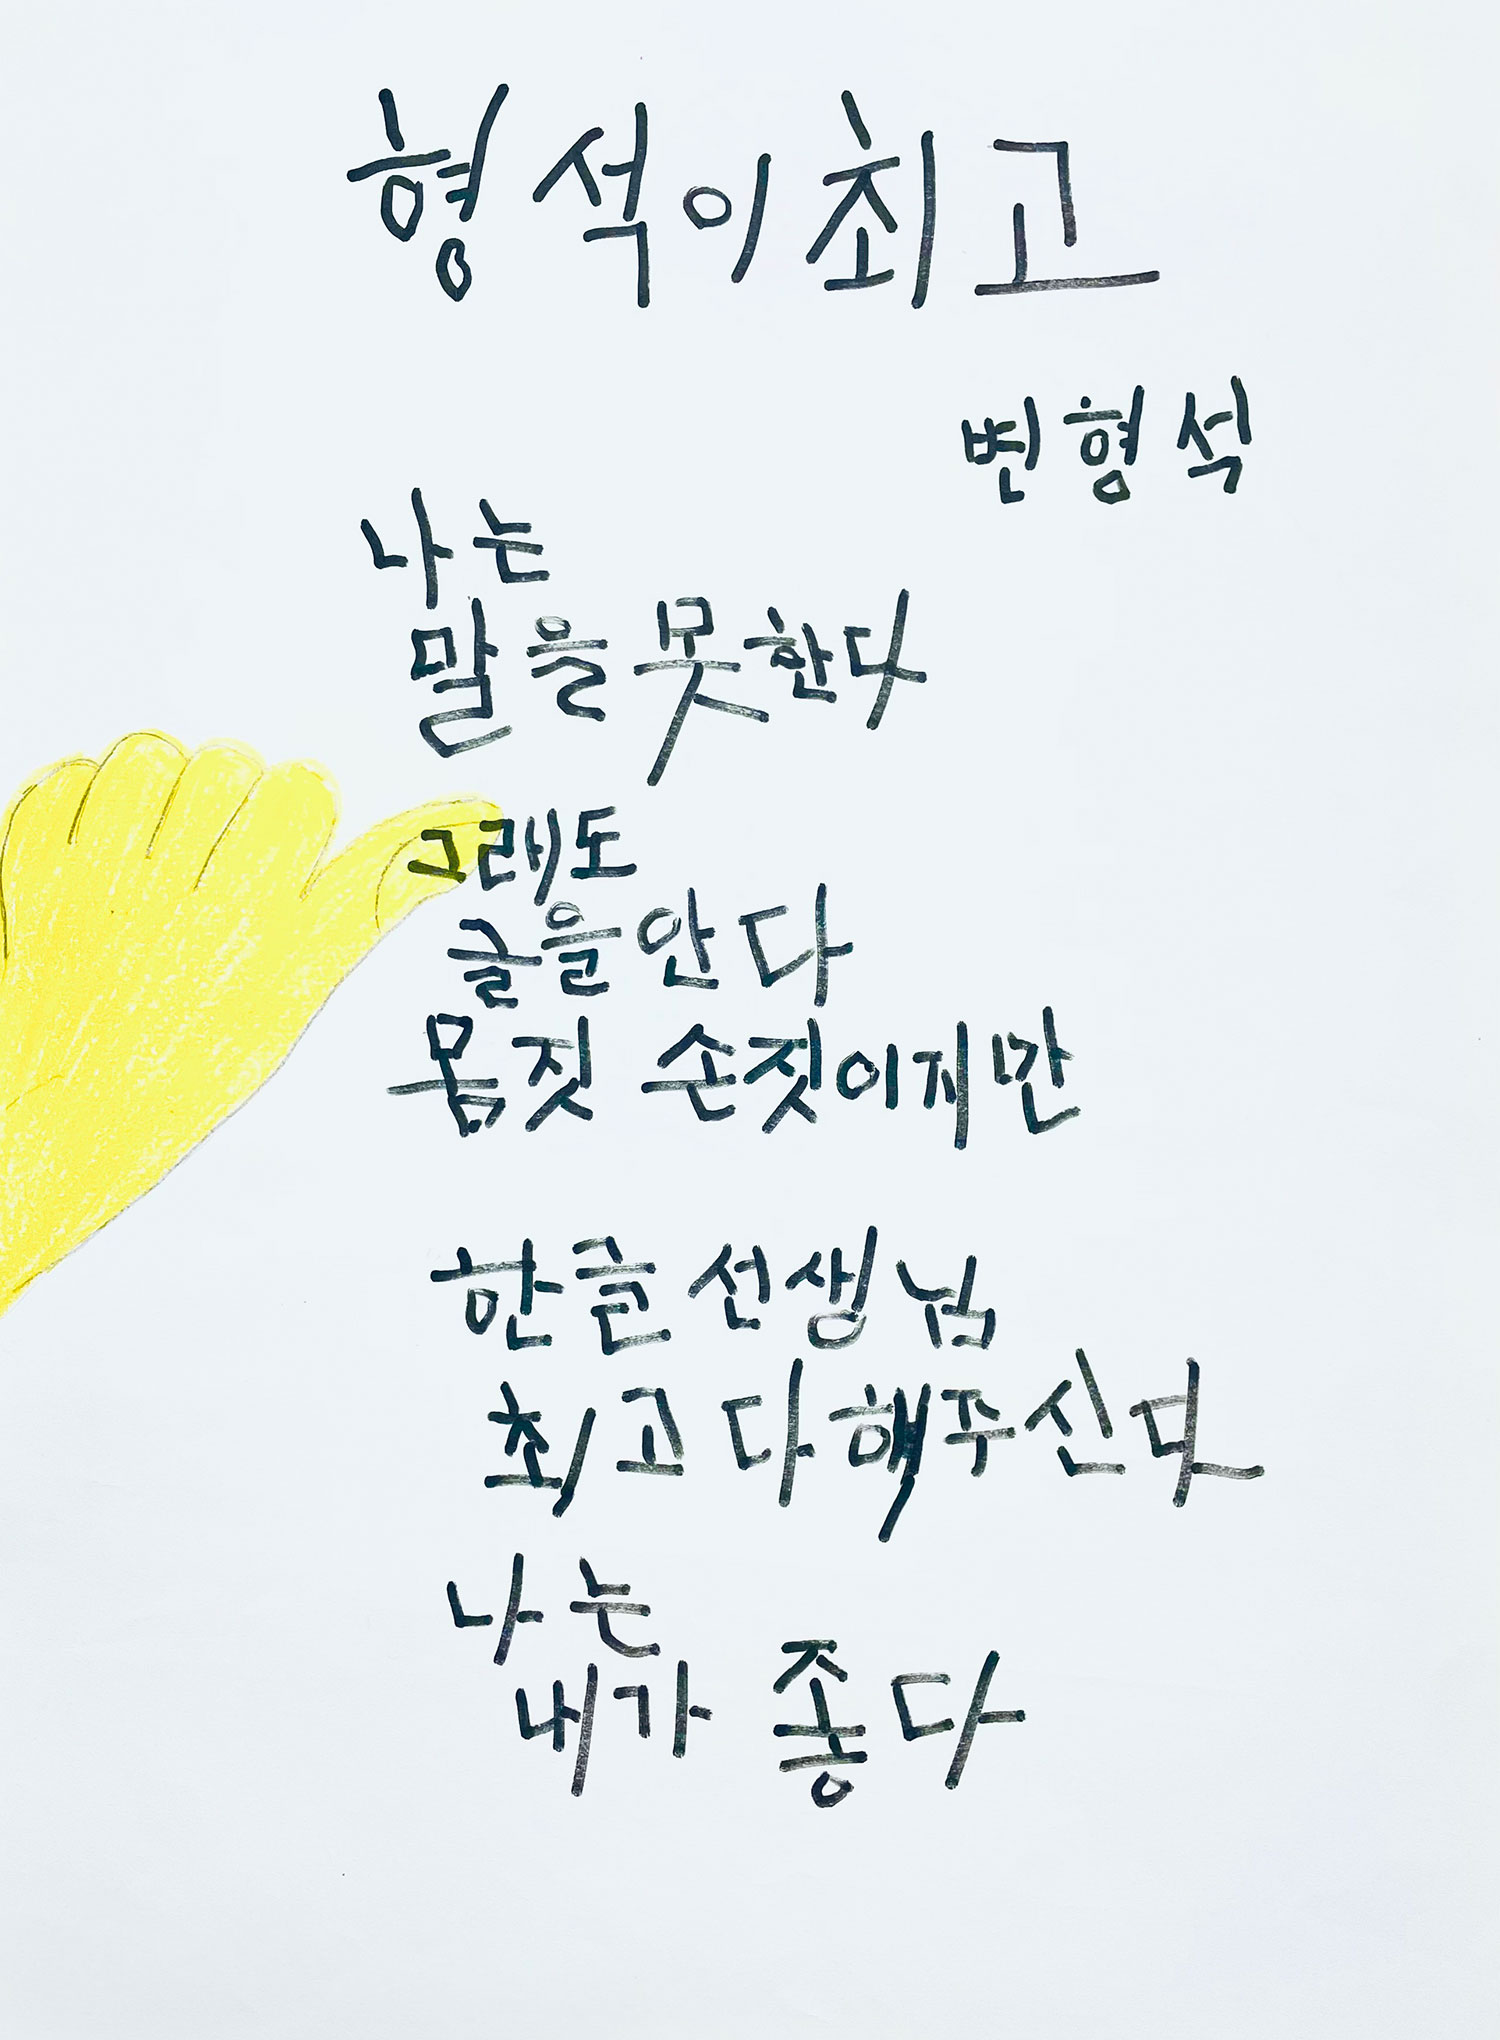 형석이 최고
변형석
나는
말을 못한다
그래도
글을 안다
몸짓 손짓이지만
한글 선생님
최고다 해주신다
나는
내가 좋다